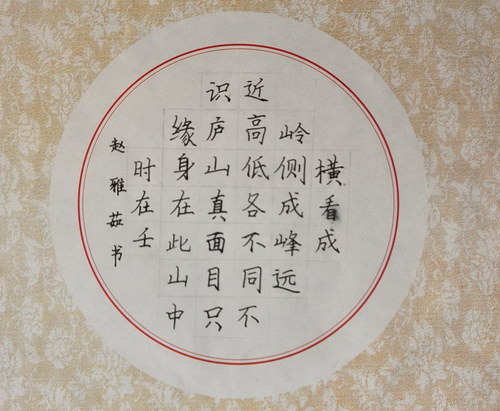 横看成
岭侧成峰远
近高低各不同不
识庐山真面目只
缘身在此山中
时在壬
赵雅茹书